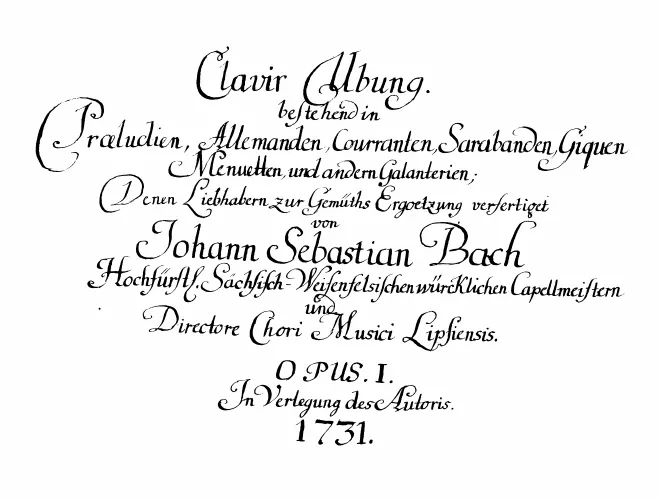 Clavir Ubung.
bestehend in
Præludien, Allemanden, Couranten, Sarabanden, Giquen
Menuetten, und andern Galanterien;
Denen Liebhabern zur Gemüths Ergoetzung verfertiget
von
Johann Sebastian Bach
Hochfürstl. Sächsisch-Weisenfelsischen würcklichen Capellmeistern
und
Directore Chori Musici Lipsiensis.
OPUS. I.
In Verlegung des Autoris.
1731.